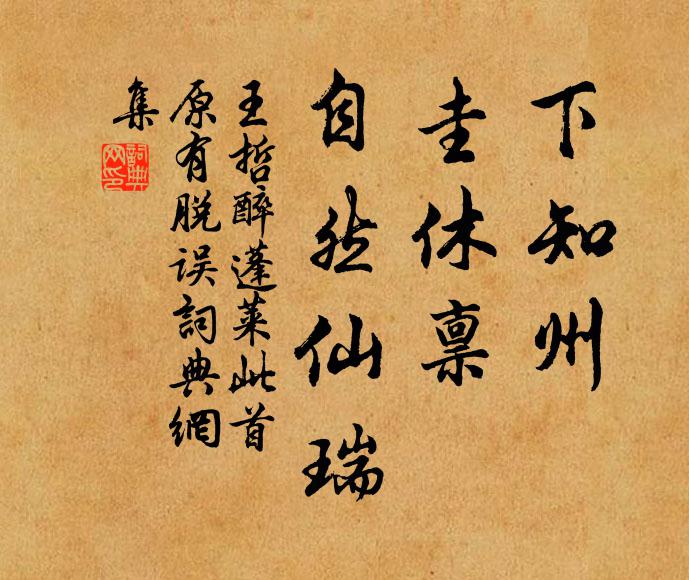 下知州
圭休稟
自然仙瑞
王哲醉蓬萊此首
原有脫误詞典網
集
詞典網印